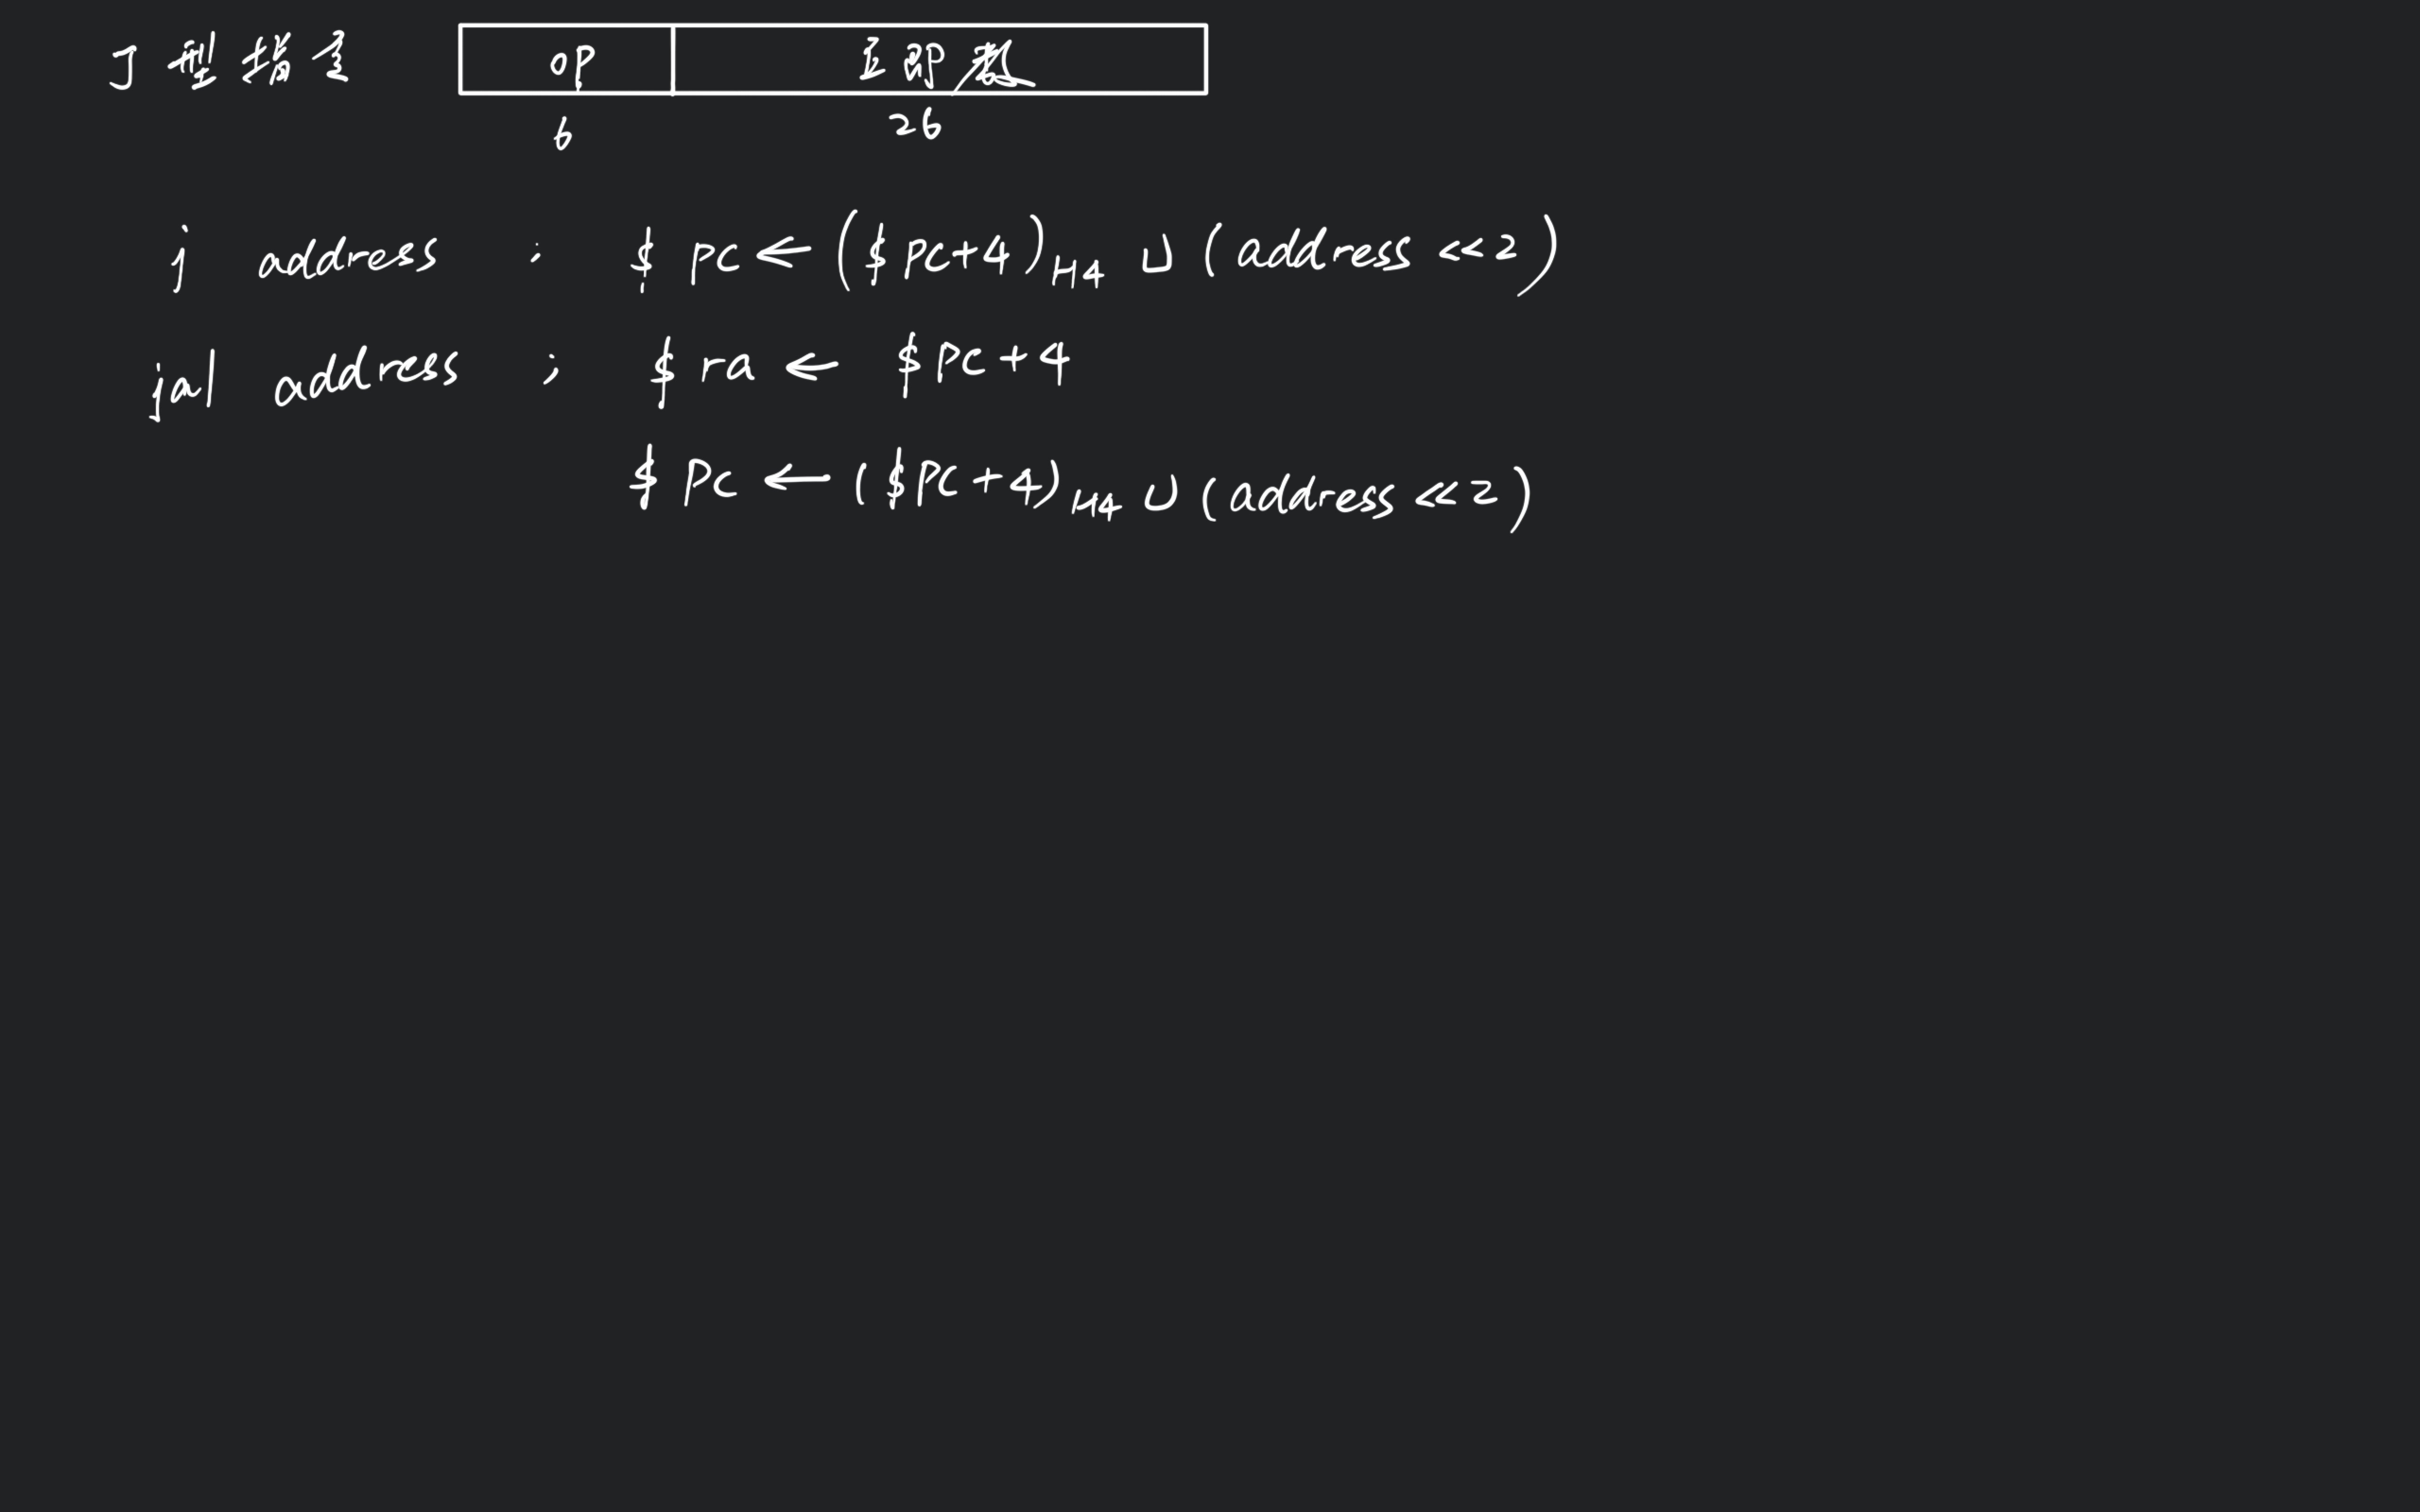 J型指令 OP 立即数
6 26
j address ; $pc ← ($pc+4)H4 ∪ (address <<2)
jal address ; $ra ← $pc+4
$pc ← ($pc+4)H4 ∪ (address <<2)